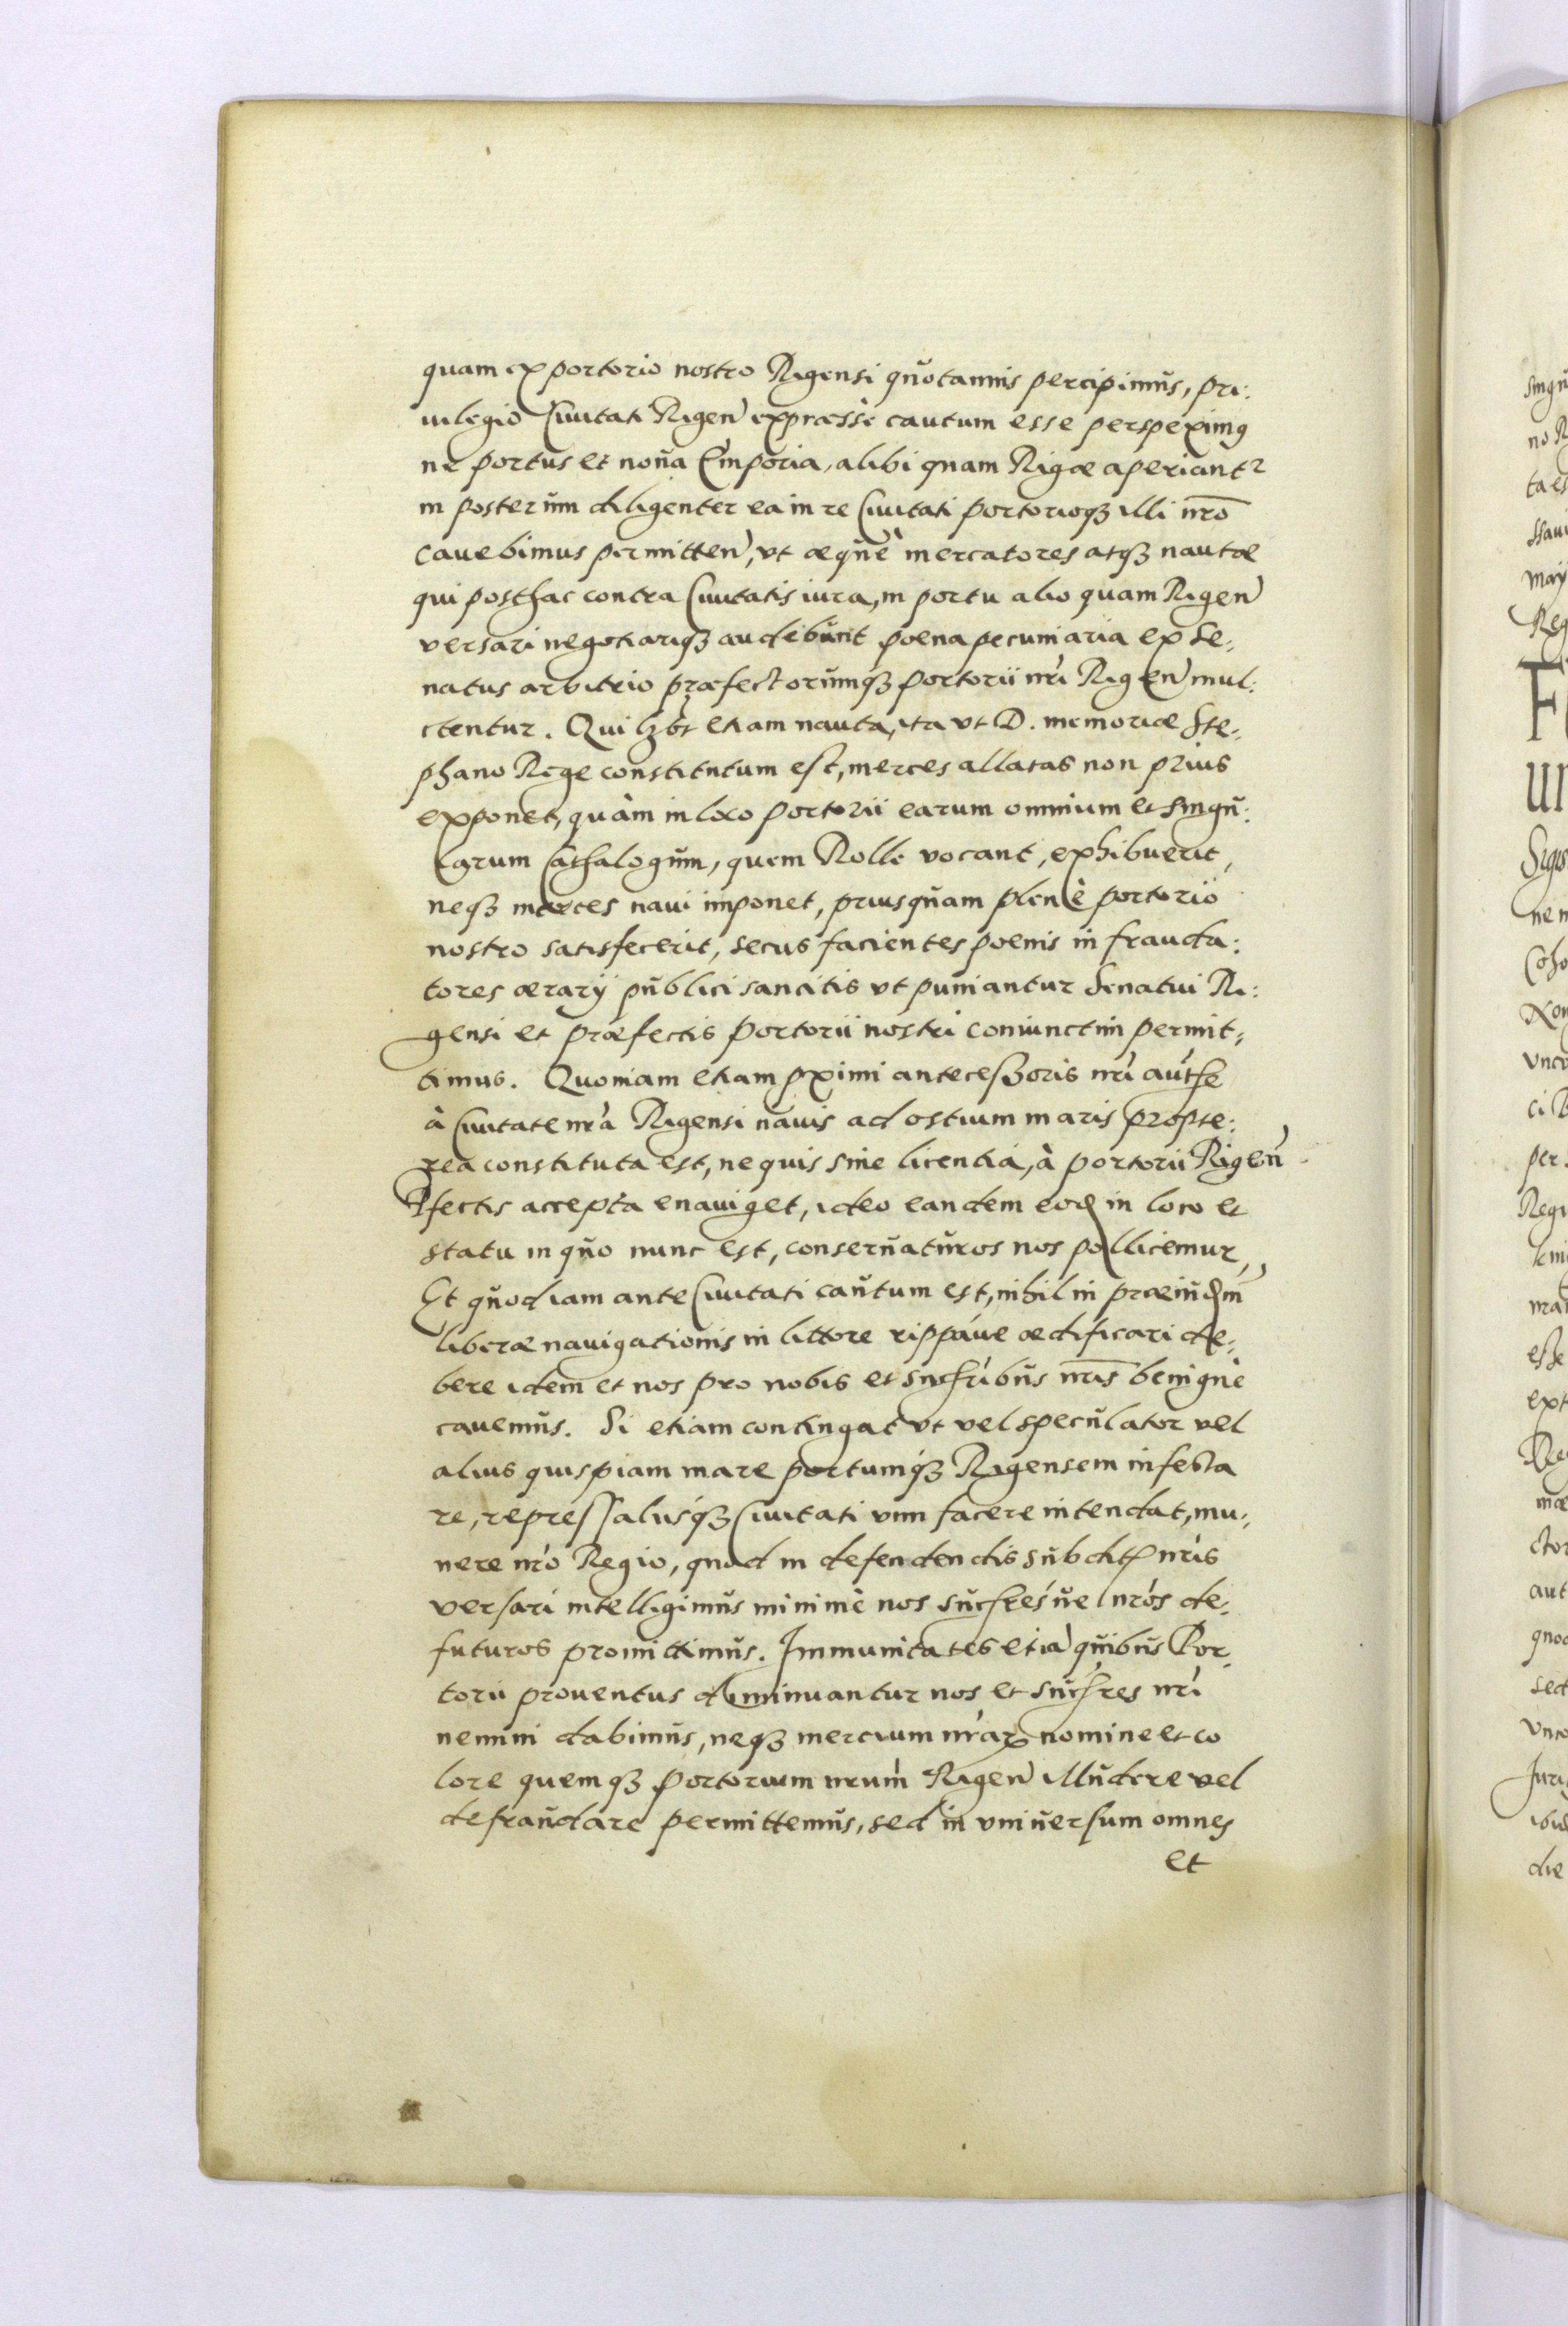 quam ex portorio nostro Rigensi quotannis percipimus, pri:
uilegio Ciuitati Rigen̄ expræssè cautum esse perspeximꝰ
ne portus et noua Emporia, alibi quam Rigæ aperiantᷣ
in posterum diligenter ea in re Ciuitati portorioqꝫ illi nr̄o
cauebimus permitten̄, vt æquè mercatores atqꝫ nautæ
qui posthac contra Ciuitatis iura, in portu alio quam Rigen̄
versari negotiariqꝫ audebunt poena pecuniaria ex Se:
natus arbitrio præfectorumqꝫ portorii nr̄i Rigen̄ mul:
ctentur. Qui etiam nauta, ita vt D. memoriæ Ste:
phano Rege constitutum est, merces allatas non prius
exponet, quàm in loco portorii earum omnium et singu:
larum Cathalogum, quem Rolle vocant, exhibuerit,
neqꝫ merces naui imponet, priusquam plenè portorio
nostro satisfecerit, secus facientes poenis in frauda:
tores ærarij publici sancitis vt puniantur Senatui Ri:
gensi et præfectis portorii nostri coniunctim permit:
timus. Quoniam etiam ꝓximi antecessoris nr̄i aut͠he
à Ciuitate nr̄a Rigensi nauis ad ostium maris propte:
rea constituta est, ne quis sine licentia, à portorii Rigen̄
P̄fectis accepta enauiget, ideo eandem eod in loco et
statu in quo nunc est, conseruaturos nos pollicemur,
Et quod iam ante Ciuitati cautum est, nihil in præiud̄m
liberæ nauigationis in littore rippáue ædificari de:
bere idem et nos pro nobis et succr̄ibus nr̄is benignè
cauemus. Si etiam contingat vt vel speculator vel
alius quispiam mare portumqꝫ Rigensem infesta
re, repressaliisqꝫ Ciuitati vim facere intendat, mu:
nere nr̄o Regio, quod in defendendis subditꝭ nr̄is
versari intelligimus minimè nos succr̄esue nr̄os de:
futuros promittimus. Immunitates etiā quibus Por:
torii prouentus diminuantur nos et succr̄es nr̄i
nemini dabimus, neqꝫ mercium nr̄aꝝ nomine et co
lore quemqꝫ portorium nr̄um Rigen̄ illudere vel
defraudare permittemus, sed in vniuersum omnes
et